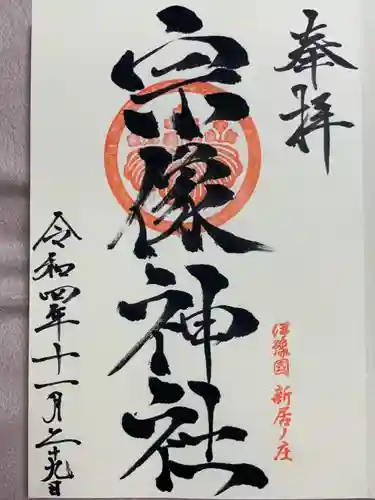 奉拝
宗像神社
伊豫國 新居ノ庄
令和四年十一月二十九日